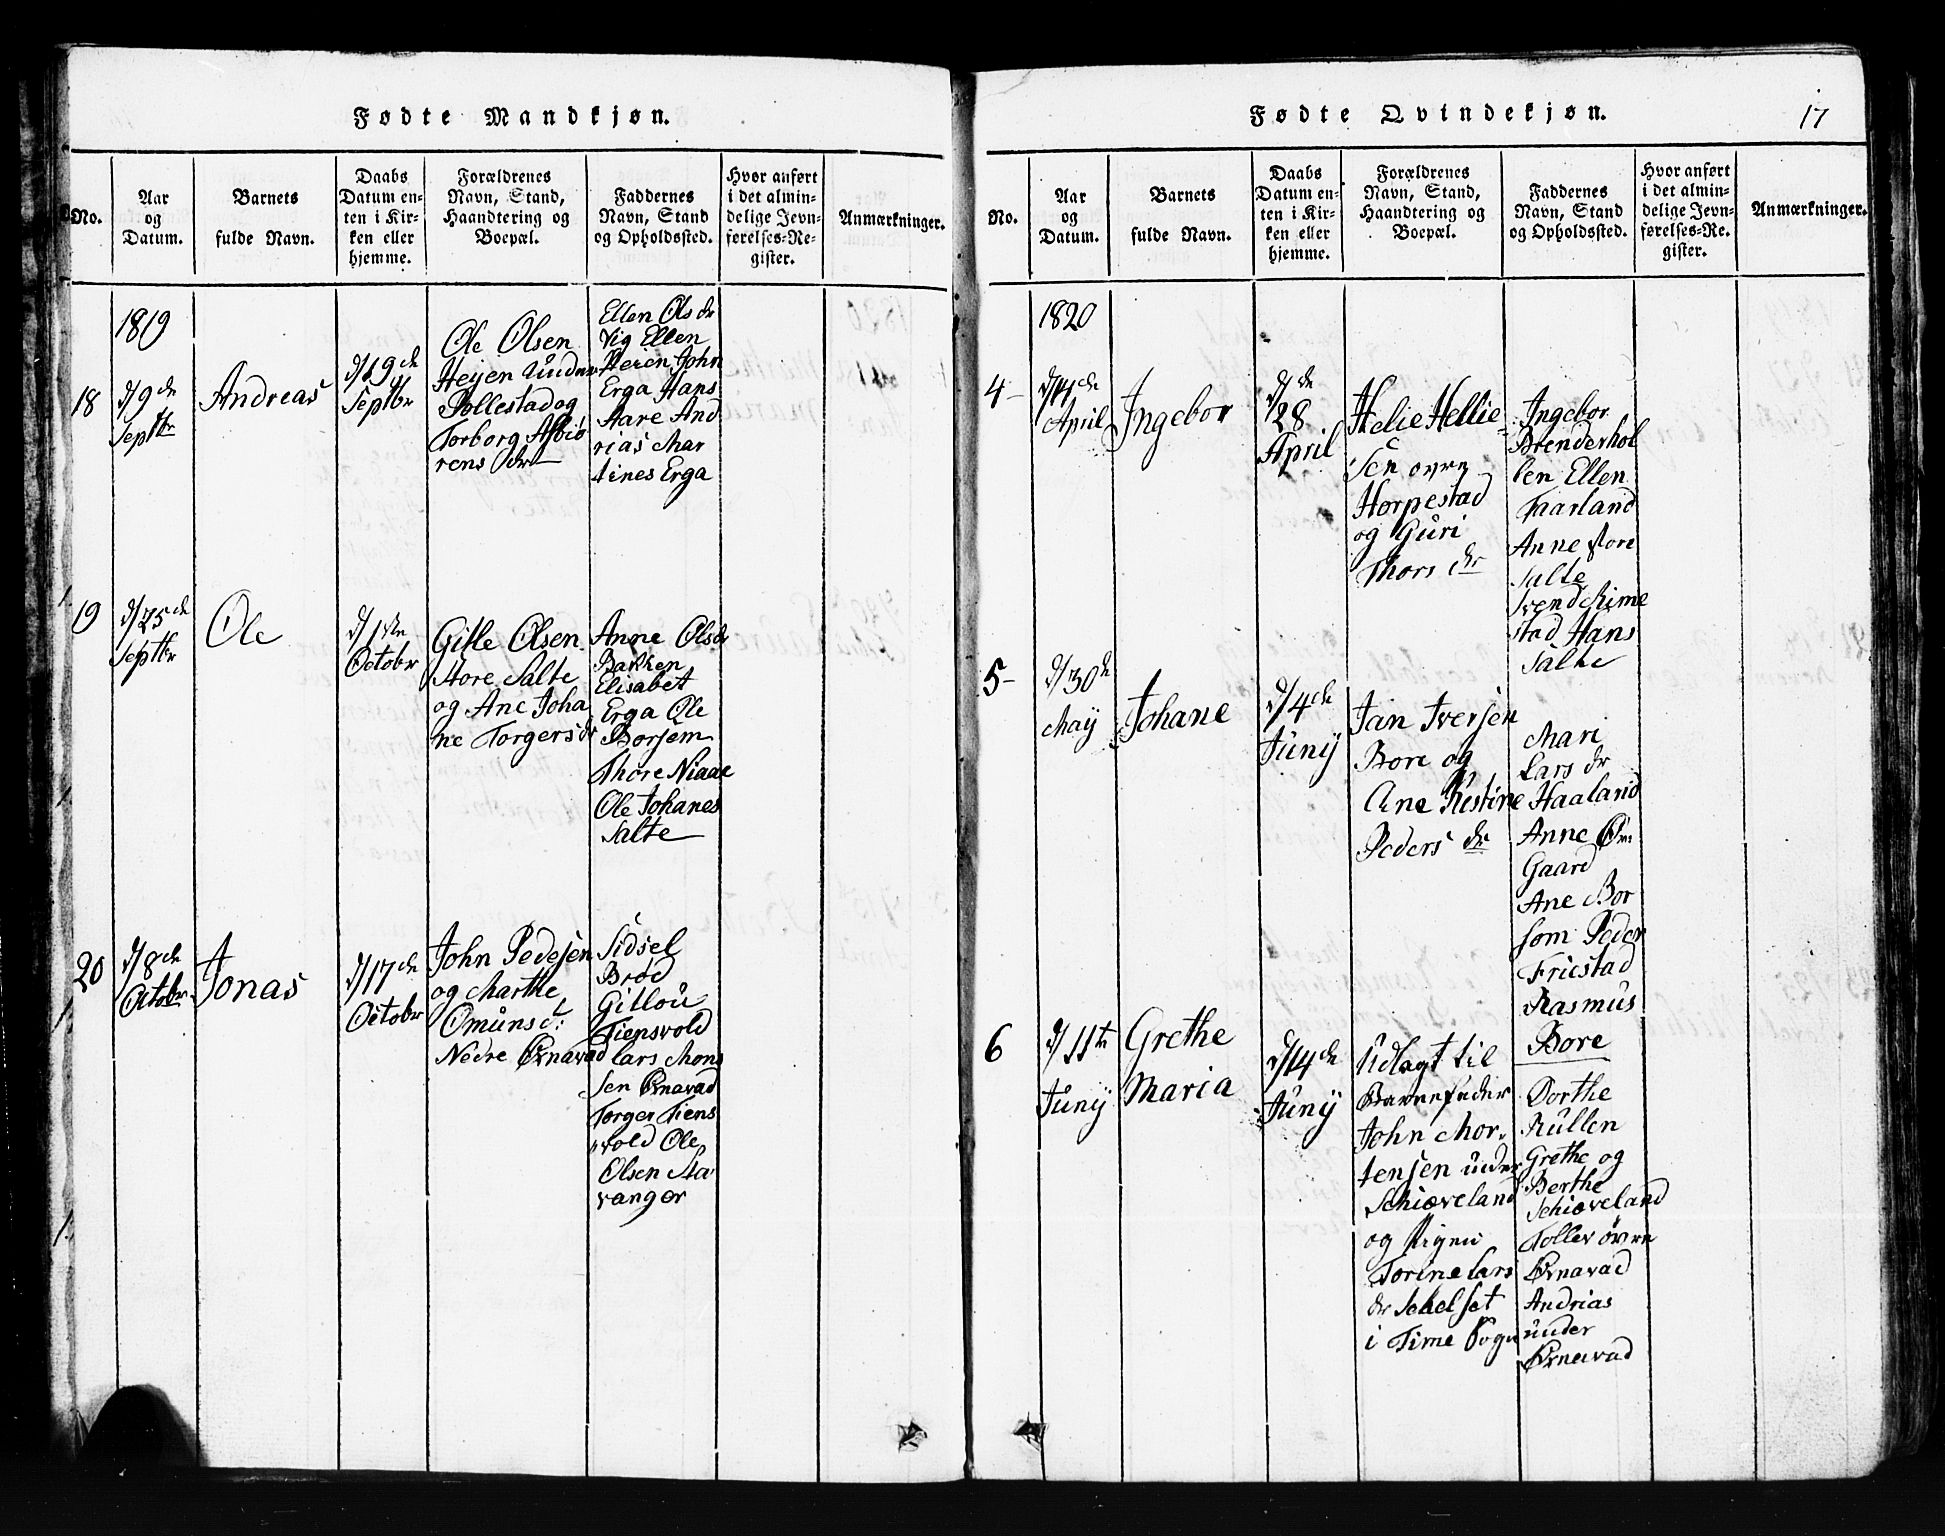 Fødte Mandkjøn.
No.
Aar
og
Datum.
Barnets
fulde Navn.
Daabs
Datum en-
ten i Kir-
ken eller
hjemme.
Forældrenes
Navn, Stand,
Haandtering og
Boepæl.
Faddernes
Navn, Stand
og Opholdssted.
Hvor anført
i det almin-
delige Jevn-
førelses-Re-
gister.
Anmærkninger.
1819
18
d/9de
Septbr
Andreas
d/19de
Septbr
Ole Olsen
Heyen Under
Pollestad og
Torborg Asbiø
rens dr
Ellen Ols dr
Vig Ellen
John
Erga Hans
Aare And
rias Mar
tines Erga
19
d/25de
Septbr
Ole
d/1ste
Octobr
Gitle Olsen
Store Salte
og Ane Joha
ne Torgersdr
Anne Olsdr
Bakken
Elisabet
Erga Ole
Borsem
Thore Niaae
Ole Johanes
Salte
20
d/8de
Octobr
Jonas
d/17de
Octobr
John Pedesen
og Marthe
Omunsd:
Nedre Ørnavad
Sidsel
Brød
Gitlou
Tiensvold
Lars Mons
sen Ørnavad
Torger Tiens
vold Ole
Olsen Sta
vanger
Fødte Qvindekjøn.
17
No.
Aar
og
Datum.
Barnets
fulde Navn.
Daabs
Datum en-
ten i Kir-
ken eller
hjemme.
Forældrenes
Navn, Stand,
Haandtering og
Boepæl.
Faddernes
Navn, Stand
og Opholdssted.
Hvor anført
i det almin-
delige Jevn-
førelses-Re-
gister.
Anmærkninger.
1820
4
April
Ingebor
d/de
28
April
Helie Hellie-
sen øvre
Horpestad
og Guri
Thors dr
Ingebor
Brenderhol
len Ellen
Taarland
Anne Store
Salte
Svend Rime
stad Hans
Salte
5
d/30de
May
Johane
d/4de
Juny
Jan Iversen
Bore og
Ane Kestine
Peders dr
Mari
Lars dr
Haaland
Anne
Gaard
Ane Bor
som Peder
Friestad
Rasmus
Bore
6
d/11te
Juny
Grethe
Maria
d/14de
Juny
Udlagt til
Barnefader
John Mor-
tensen under
Schiæveland
og Pigen
Torine Lars
dr Sehelset
i Time Sogn
Dorthe
Kullen
Grethe og
Berthe
Schiæveland
Tollev øvre
Ørnavad
Andrias
under
Ørnavad